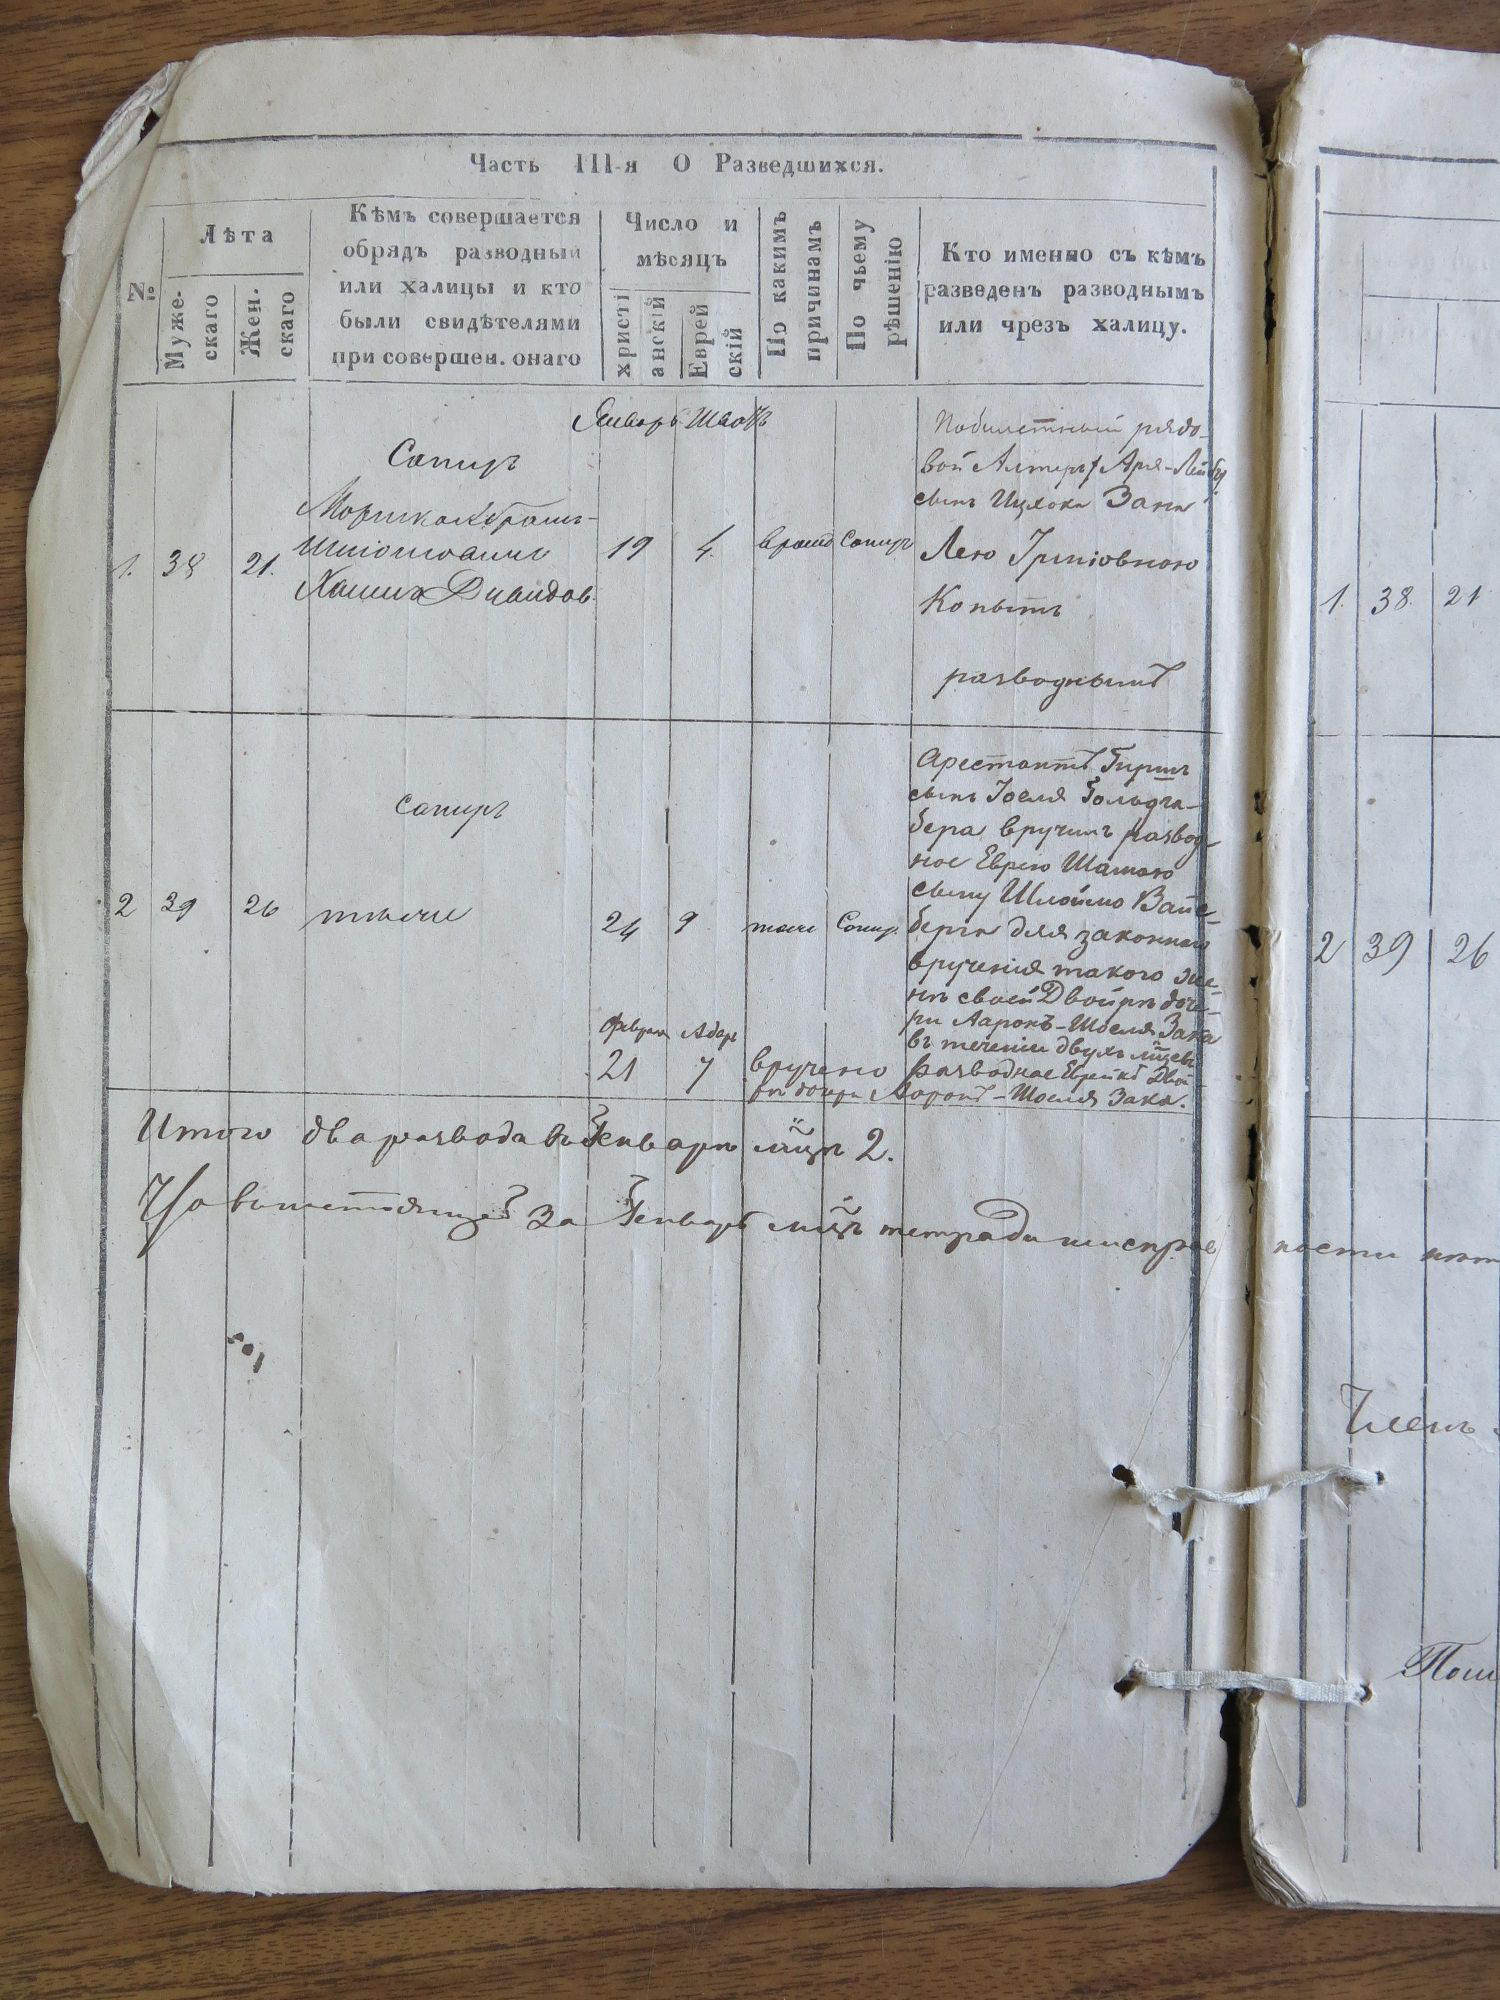 Часть III-я О Разведшихся.
№
Лѣта
Мужескаго
Женскаго
Кѣмъ совершается
обрядъ разводный
или халицы и кто
были свидѣтелями
при совершен. онаго
Число и
мѣсяцъ
христіанскій
Еврейскій
По какимъ
причинамъ
По чьему
рѣшенію
Кто именно съ кѣмъ
разведенъ разводнымъ
или чрезъ халицу.
Январь Шватъ
Сапиръ
1. 38 21.
19 4.
Сапиръ
рядо-
вой Алтеръ Аря-Лейба
сынъ Ицхока Зака
Лею
Копытъ
разводнымъ
Сапиръ
2 39 26
тѣже
24 9 тоже Сапиръ
Арестантъ Гиршъ
сынъ Іоеля Гольдга-
бера вручилъ развод
ное Еврею Шамаю
сыну Шлоймо Вайс-
берга для законнаго
врученія такого же-
нѣ своей Двойрѣ доче-
ри Ааронъ-Шоеля Зака
въ теченіи двухъ мѣсяц
Феврал Адаръ
21 7
вручено разводное Еврейкѣ Двой
рѣ дочери Ааронъ-Шоеля Зака.
Итого два развода въ Январѣ мцѣ 2.
за Январь мцъ тетради неисправ
ности нѣт
1. 38. 21
2 39 26
Членъ